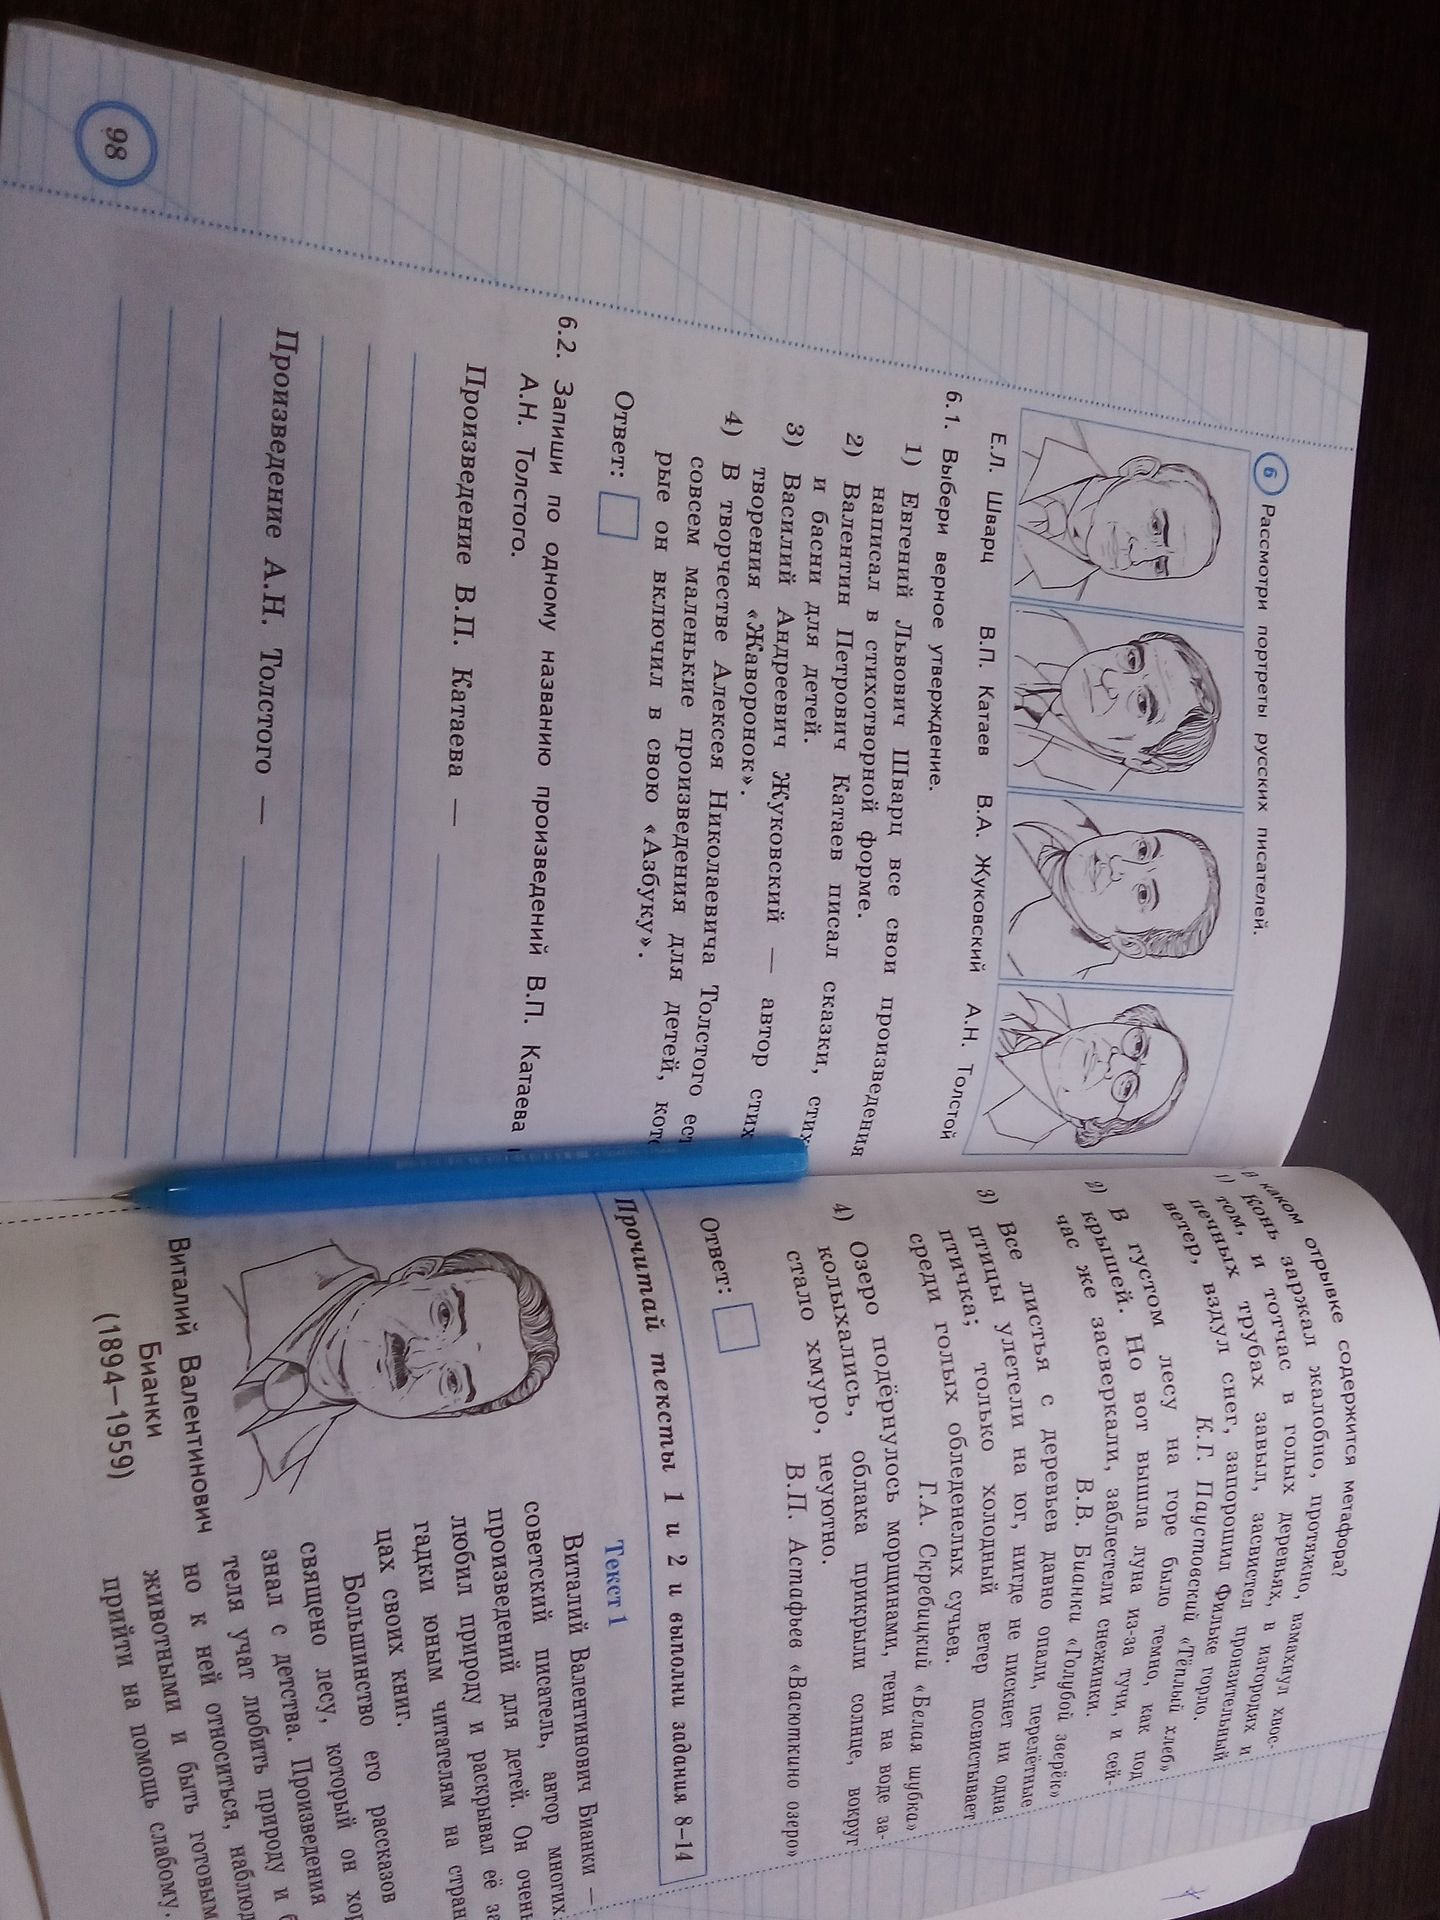 6 Рассмотри портреты русских писателей.
Е.Л. Шварц В.П. Катаев В.А. Жуковский А.Н. Толстой
6.1. Выбери верное утверждение.
1) Евгений Львович Шварц все свои произведения
написал в стихотворной форме.
2) Валентин Петрович Катаев писал сказки, стих
и басни для детей.
3) Василий Андреевич Жуковский — автор стих
творения «Жаворонок».
4) В творчестве Алексея Николаевича Толстого ест
совсем маленькие произведения для детей, кото
рые он включил в свою «Азбуку».
Ответ:
6.2. Запиши по одному названию произведений В.П. Катаева
А.Н. Толстого.
Произведение В.П. Катаева —
Произведение А.Н. Толстого —
98
В каком отрывке содержится метафора?
1) Конь заржал жалобно, протяжно, взмахнул хвос-
том, и тотчас в голых деревьях, в изгородях и
печных трубах завыл, засвистел пронзительный
ветер, вздул снег, запорошил Фильке горло.
К.Г. Паустовский «Тёплый хлеб»
2) В густом лесу на горе было темно, как под
крышей. Но вот вышла луна из-за тучи, и сей-
час же засверкали, заблестели снежинки.
В.В. Бианки «Голубой зверёк»
3) Все листья с деревьев давно опали, перелётные
птицы улетели на юг, нигде не пискнет ни одна
птичка; только холодный ветер посвистывает
среди голых обледенелых сучьев.
Г.А. Скребицкий «Белая шубка»
4) Озеро подёрнулось морщинами, тени на воде за-
колыхались, облака прикрыли солнце, вокруг
стало хмуро, неуютно.
В.П. Астафьев «Васюткино озеро»
Ответ:
Прочитай тексты 1 и 2 и выполни задания 8–14
Текст 1
Виталий Валентинович Бианки —
советский писатель, автор многих
произведений для детей. Он очень
любил природу и раскрывал её за
гадки юным читателям на стран
цах своих книг.
Большинство его рассказов
священо лесу, который он хор
знал с детства. Произведения
теля учат любить природу и б
но к ней относиться, наблюд
животными и быть готовым
прийти на помощь слабому.
Виталий Валентинович
Бианки
(1894–1959)